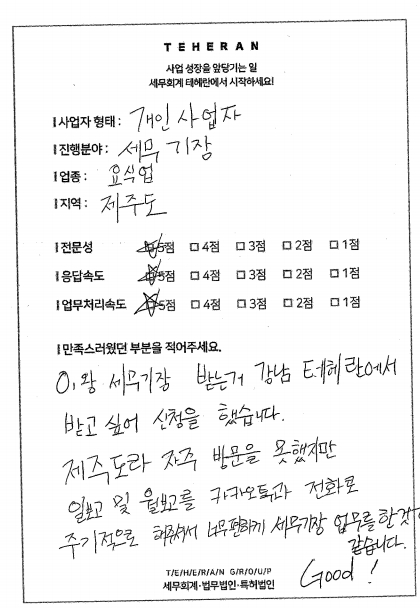 TEHERAN
사업 성장을 앞당기는 일
세무회계 테헤란에서 시작하세요!
사업자 형태 : 개인 사업자
진행분야 : 세무 기장
업종 : 요식업
지역 : 제주도
전문성 5점 4점 3점 2점 1점
응답속도 5점 4점 3점 2점 1점
업무처리속도 5점 4점 3점 2점 1점
만족스러웠던 부분을 적어주세요.
이왕 세무기장 받는거 강남 테헤란에서
받고 싶어 신청을 했습니다.
제주도라 자주 방문을 못했지만
일보고 및 월보고를 카카오톡과 전화로
주기적으로 해주셔서 너무편하게 세무기장 업무를 한것
같습니다.
Good!
T/E/H/E/R/A/N G/R/O/U/P
세무회계·법무법인·특허법인